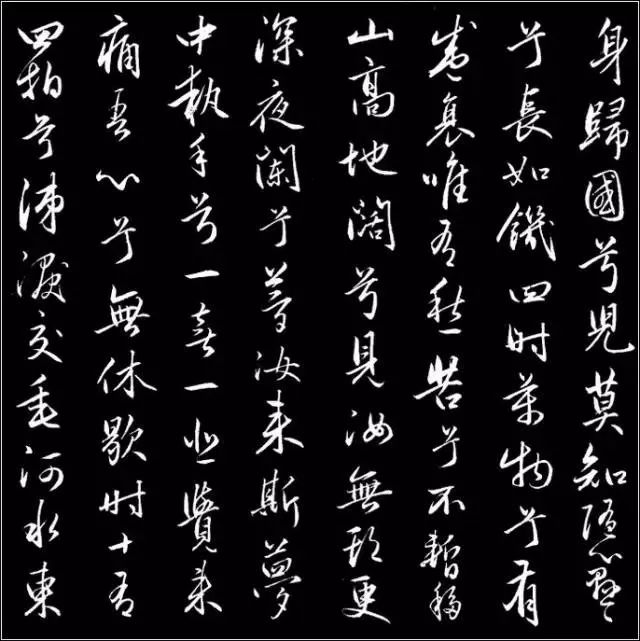 身歸國兮児莫知随心懸〻
兮長如饑四时萬物兮有
盛衰唯有愁苦兮不暫移
山高地闊兮見汝無期更
深夜闌兮夢汝来斯夢
中執手兮一喜一悲覺来
痛吾心兮無休歇时十有
四拍兮涕淚交垂河水東